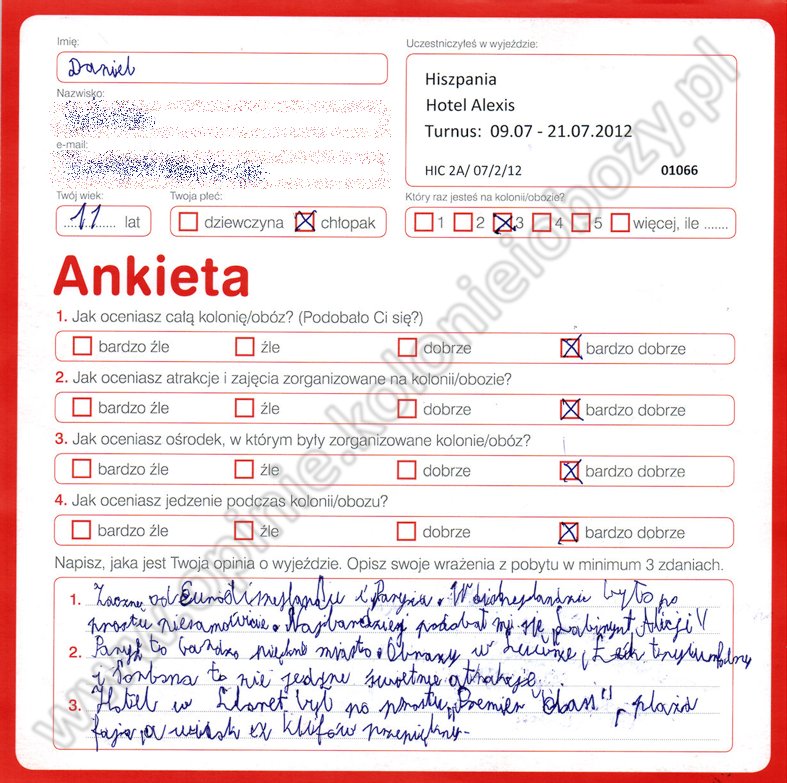 Imię:
Daniel
Uczestniczyłeś w wyjeździe:
Hiszpania
Hotel Alexis
Turnus: 09.07 - 21.07.2012
HIC 2A/ 07/2/12 01066
Nazwisko:
e-mail:
Twój wiek: Twoja płeć: Który raz jesteś na kolonii/obozie?
11 lat dziewczyna chłopak 1 2 3 4 5 więcej, ile .......
Ankieta
1. Jak oceniasz całą kolonię/obóz? (Podobało Ci się?)
bardzo źle źle dobrze bardzo dobrze
2. Jak oceniasz atrakcje i zajęcia zorganizowane na kolonii/obozie?
bardzo źle źle dobrze bardzo dobrze
3. Jak oceniasz ośrodek, w którym były zorganizowane kolonie/obóz?
bardzo źle źle dobrze bardzo dobrze
4. Jak oceniasz jedzenie podczas kolonii/obozu?
bardzo źle źle dobrze bardzo dobrze
Napisz, jaka jest Twoja opinia o wyjeździe. Opisz swoje wrażenia z pobytu w minimum 3 zdaniach.
1. Zacznę od i Paryża. W było po
prostu niesamowicie. Najbardziej podobał mi się „Labirynt Alicji"
2. Paryż to bardzo piękne miasto. Obrazy w Luwrze, Łuk
i to nie jedyne świetne atrakcje.
3. Hotel w Lloret był po prostu „Premier class", plaża
fajna widok z klifów przepiękny.
www.opinie.kolonieiobozy.pl